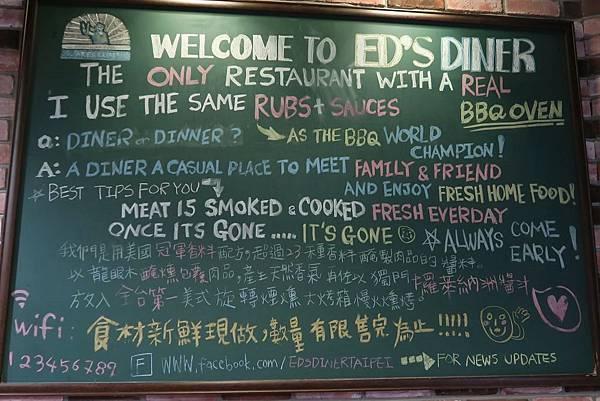 WELCOME TO ED'S DINER
THE ONLY RESTAURANT WITH A REAL
BBQ OVEN
I USE THE SAME RUBS + SAUCES
AS THE BBQ WORLD
CHAMPION!
Q: DINER or DINNER?
A: A DINER A CASUAL PLACE TO MEET FAMILY & FRIEND
AND ENJOY FRESH HOME FOOD!
BEST TIPS FOR YOU
MEAT IS SMOKED & COOKED FRESH EVERDAY
ONCE ITS GONE ..... IT'S GONE
ALWAYS COME
EARLY!
我們是用美國冠軍香料配方,超過23種香料醃製肉品和醬料。
以龍眼木醃燻包覆肉品,產生天然香氣,再佐以獨門卡羅萊納沾醬汁
放入全台第一美式旋轉煙燻大烤箱慢火燻烤。
wifi:
食材新鮮現做,數量有限售完為止!!!!!
123456789
F www.facebook.com/EDSDINERTAIPEI
FOR NEWS UPDATES